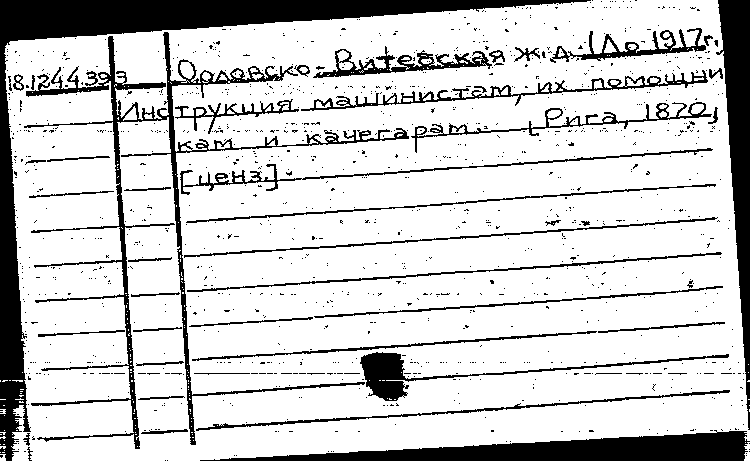 18.124.4.393 Орловско-Витебская ж.д. (До 1917г.)
Инструкция машинистам, их помощни
кам и качегарам. [Рига, 1870]
[ценз.]